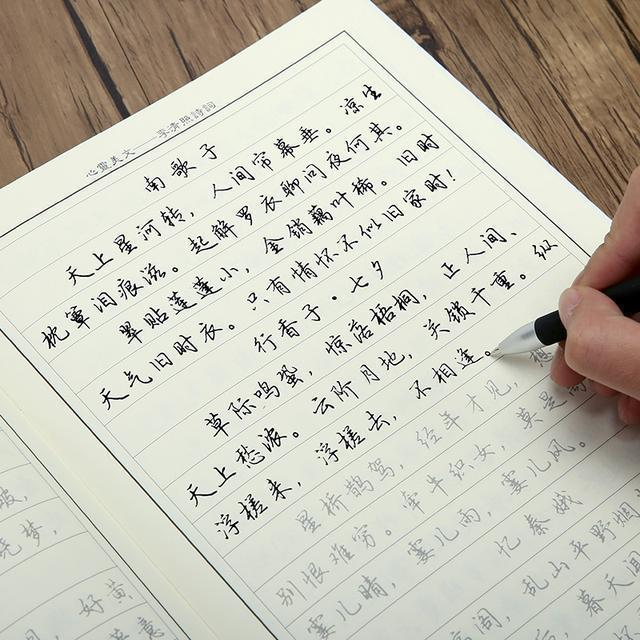 心靈美文——李清照詩詞
南歌子
天上星河转，人间帘幕垂。凉生
枕簟泪痕滋。起解罗衣聊问夜何其。
翠贴莲蓬小，金销藕叶稀。旧时
天气旧时衣。只有情怀不似旧家时！
行香子·七夕
草际鸣蛩，惊落梧桐，正人间、
天上愁浓。云阶月地，关锁千重。纵
浮槎来，浮槎去，不相逢。
星桥鹊驾，经年才见，想
别恨难穷。牵牛织女，莫是离
霎儿晴，霎儿雨，霎儿风。
忆秦娥
临高阁，乱山平野烟
暮天闻
好黄